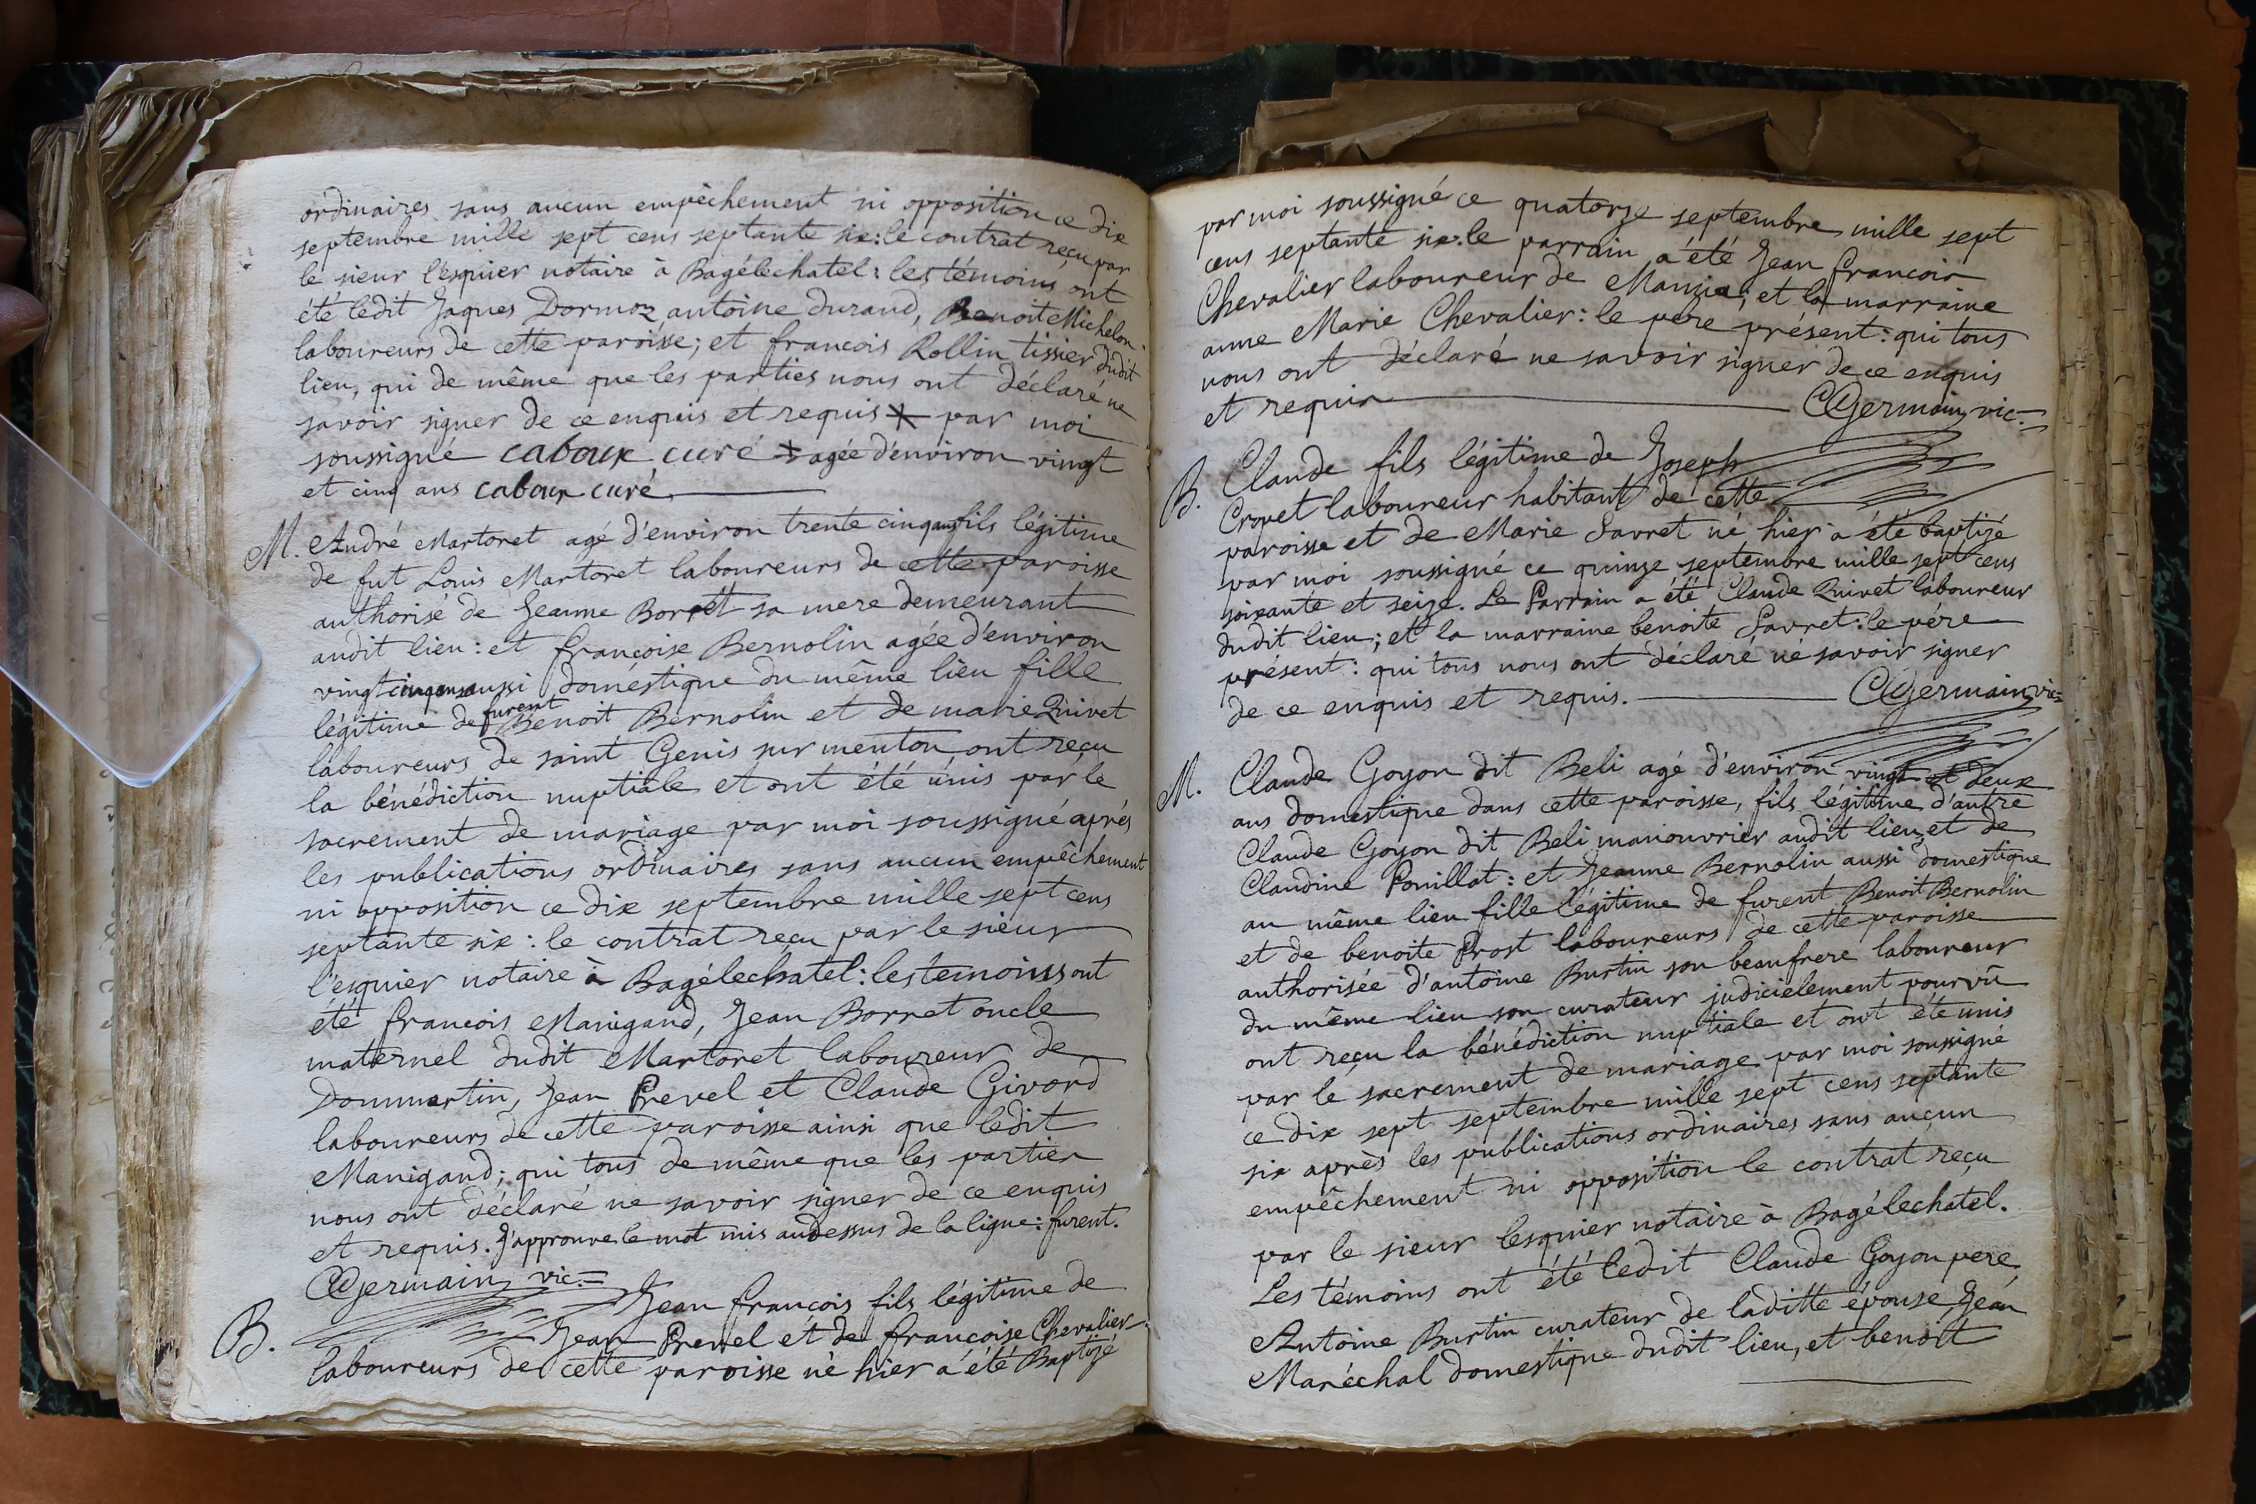 ordinaires sans aucun empêchement ni opposition ce dix
septembre mille sept cens septante six: le contrat reçu par
le sieur l'esquier notaire à Bagélechatel: les témoins ont
été ledit Jaques Dormoz antoine durand, Benoit Michelon
laboureurs de cette paroisse; et francois Rollin tissier dudit
lieu, qui de même que les parties nous ont déclaré ne
savoir signer de ce enquis et requis par moi
soussigné caboux curé agée d'environ vingt
et cinq ans caboux curé
M. André Martoret agé d'environ trente cinq ans fils légitime
de fut Louis Martoret laboureurs de cette paroisse
authorisé de Jeanne Borret sa mere demeurant
audit lieu: et françoise Bernolin agée d'environ
vingt cinq ans aussi doméstique du même lieu fille
légitime de furent Benoit Bernolin et de marie Quivet
laboureurs de saint Genis sur menton ont reçu
la bénédiction nuptiale et ont été unis par le
sacrement de mariage par moi soussigné aprés
les publications ordinaires sans aucun empêchement
ni opposition ce dix septembre mille sept cens
septante six: le contrat reçu par le sieur
l'esquier notaire à Bagélechatel: les temoins ont
été francois Manigand, Jean Borret oncle
maternel dudit Martoret laboureur de
Dommartin, Jean Prevel et Claude Givord
laboureurs de cette paroisse ainsi que ledit
Manigand; qui tous de même que les parties
nous ont déclaré ne savoir signer de ce enquis
et requis. J'approuve le mot mis audessus de la ligne: furent.
Germain vic.=
B. Jean françois fils légitime de
Jean Prevel et de françoise Chevalier
laboureurs de cette paroisse né hier a été Baptizé
par moi soussigné ce quatorze septembre mille sept
cens septante six. le parrain a été Jean francois
Chevalier laboureur de Manzia; et la marraine
anne Marie Chevalier: le pere présent: qui tous
nous ont déclaré ne savoir signer de ce enquis
et requis Germain vic.=
B. Claude fils légitime de Joseph
Crovet laboureur habitant de cette
paroisse et de Marie Savret né hier a été baptizé
par moi soussigné ce quinze septembre mille sept cens
soixante et seize. Le Parrain a été Claude Quivet laboureur
dudit lieu; et la marraine benoite Savret: le pére
présent: qui tous nous ont déclaré ne savoir signer
de ce enquis et requis. Germain vic=
M. Claude Goyon dit Beli agé d'environ vingt et deux
ans domestique dans cette paroisse, fils légitime d'autre
Claude Goyon dit Beli manouvrier audit lieu et de
Claudine Pouillat: et Jeanne Bernolin aussi domestique
au même lieu fille légitime de furent Benoit Bernolin
et de benoite Prost laboureurs de cette paroisse
authorisée d'antoine Burtin son beaufrere laboureur
du même lieu son curateur judicielement pourvû
ont reçu la bénédiction nuptiale et ont été unis
par le sacrement de mariage par moi soussigné
ce dix sept septembre mille sept cens septante
six après les publications ordinaires sans aucun
empêchement ni opposition le contrat reçu
par le sieur lesquier notaire à Bagélechatel.
Les témoins ont été ledit Claude Goyon pere
Antoine Burtin curateur de laditte épouse Jean
Maréchal domestique dudit lieu, et benoit